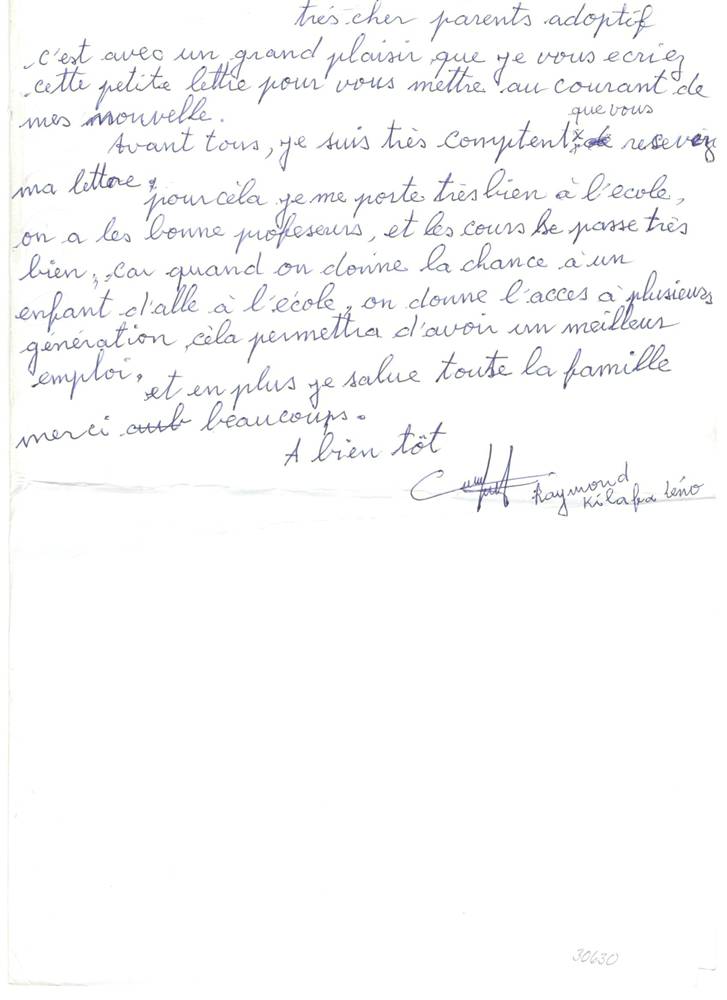 très cher parents adoptif
c'est avec un grand plaisir que je vous ecriez
cette petite lettre pour vous mettre au courant de
mes nouvelle.
que vous
Avant tous, je suis très comptent recevez
ma lettere, pour cèla je me porte très bien à l'ecole,
on a les bonne professeurs, et les cours se passe très
bien, car quand on donne la chance à un
enfant d'alle à l'école, on donne l'acces à plusieurs
génération, cèla permettra d'avoir un meilleur
emploi, et en plus je salue toute la famille
merci beaucoups.
A bien tôt
Raymond
Kilafba Léno
30630